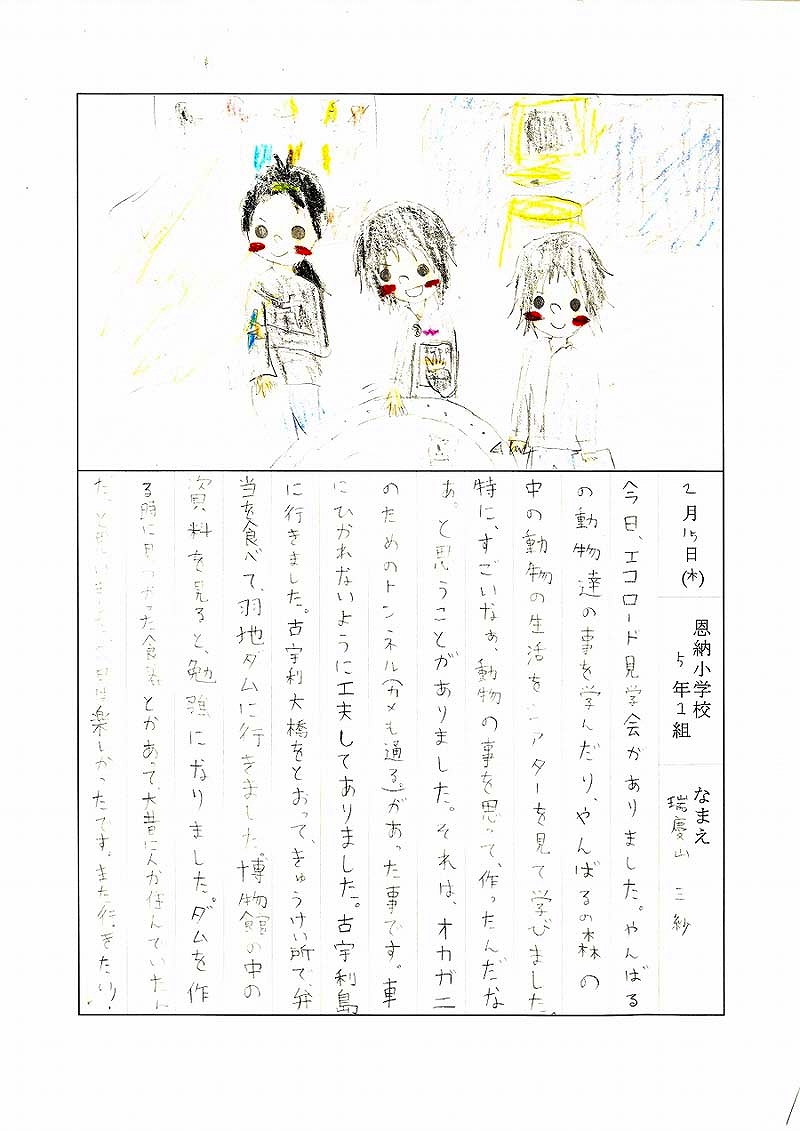 2月15日(木)
恩納小学校
5年1組
なまえ
瑞慶山 三紗
今日、エコロード見学会がありました。やんばる
の動物達の事を学んだり、やんばるの森の
中の動物の生活をシアターを見て学びました。
特に、すごいなぁ、動物の事を思って、作ったんだな
あ。と思うことがありました。それは、オカガニ
のためのトンネル(カメも通る。)があった事です。車
にひかれないように工夫してありました。古宇利島
に行きました。古宇利大橋をとおって、きゅうけい所で、弁
当を食べて、羽地ダムに行きました。博物館の中の
資料を見ると、勉強になりました。ダムを作
る時に見つかった食器とかあって、大昔に人が住んでいたん
だ、と思いました。今日は楽しかったです。また行きたい!